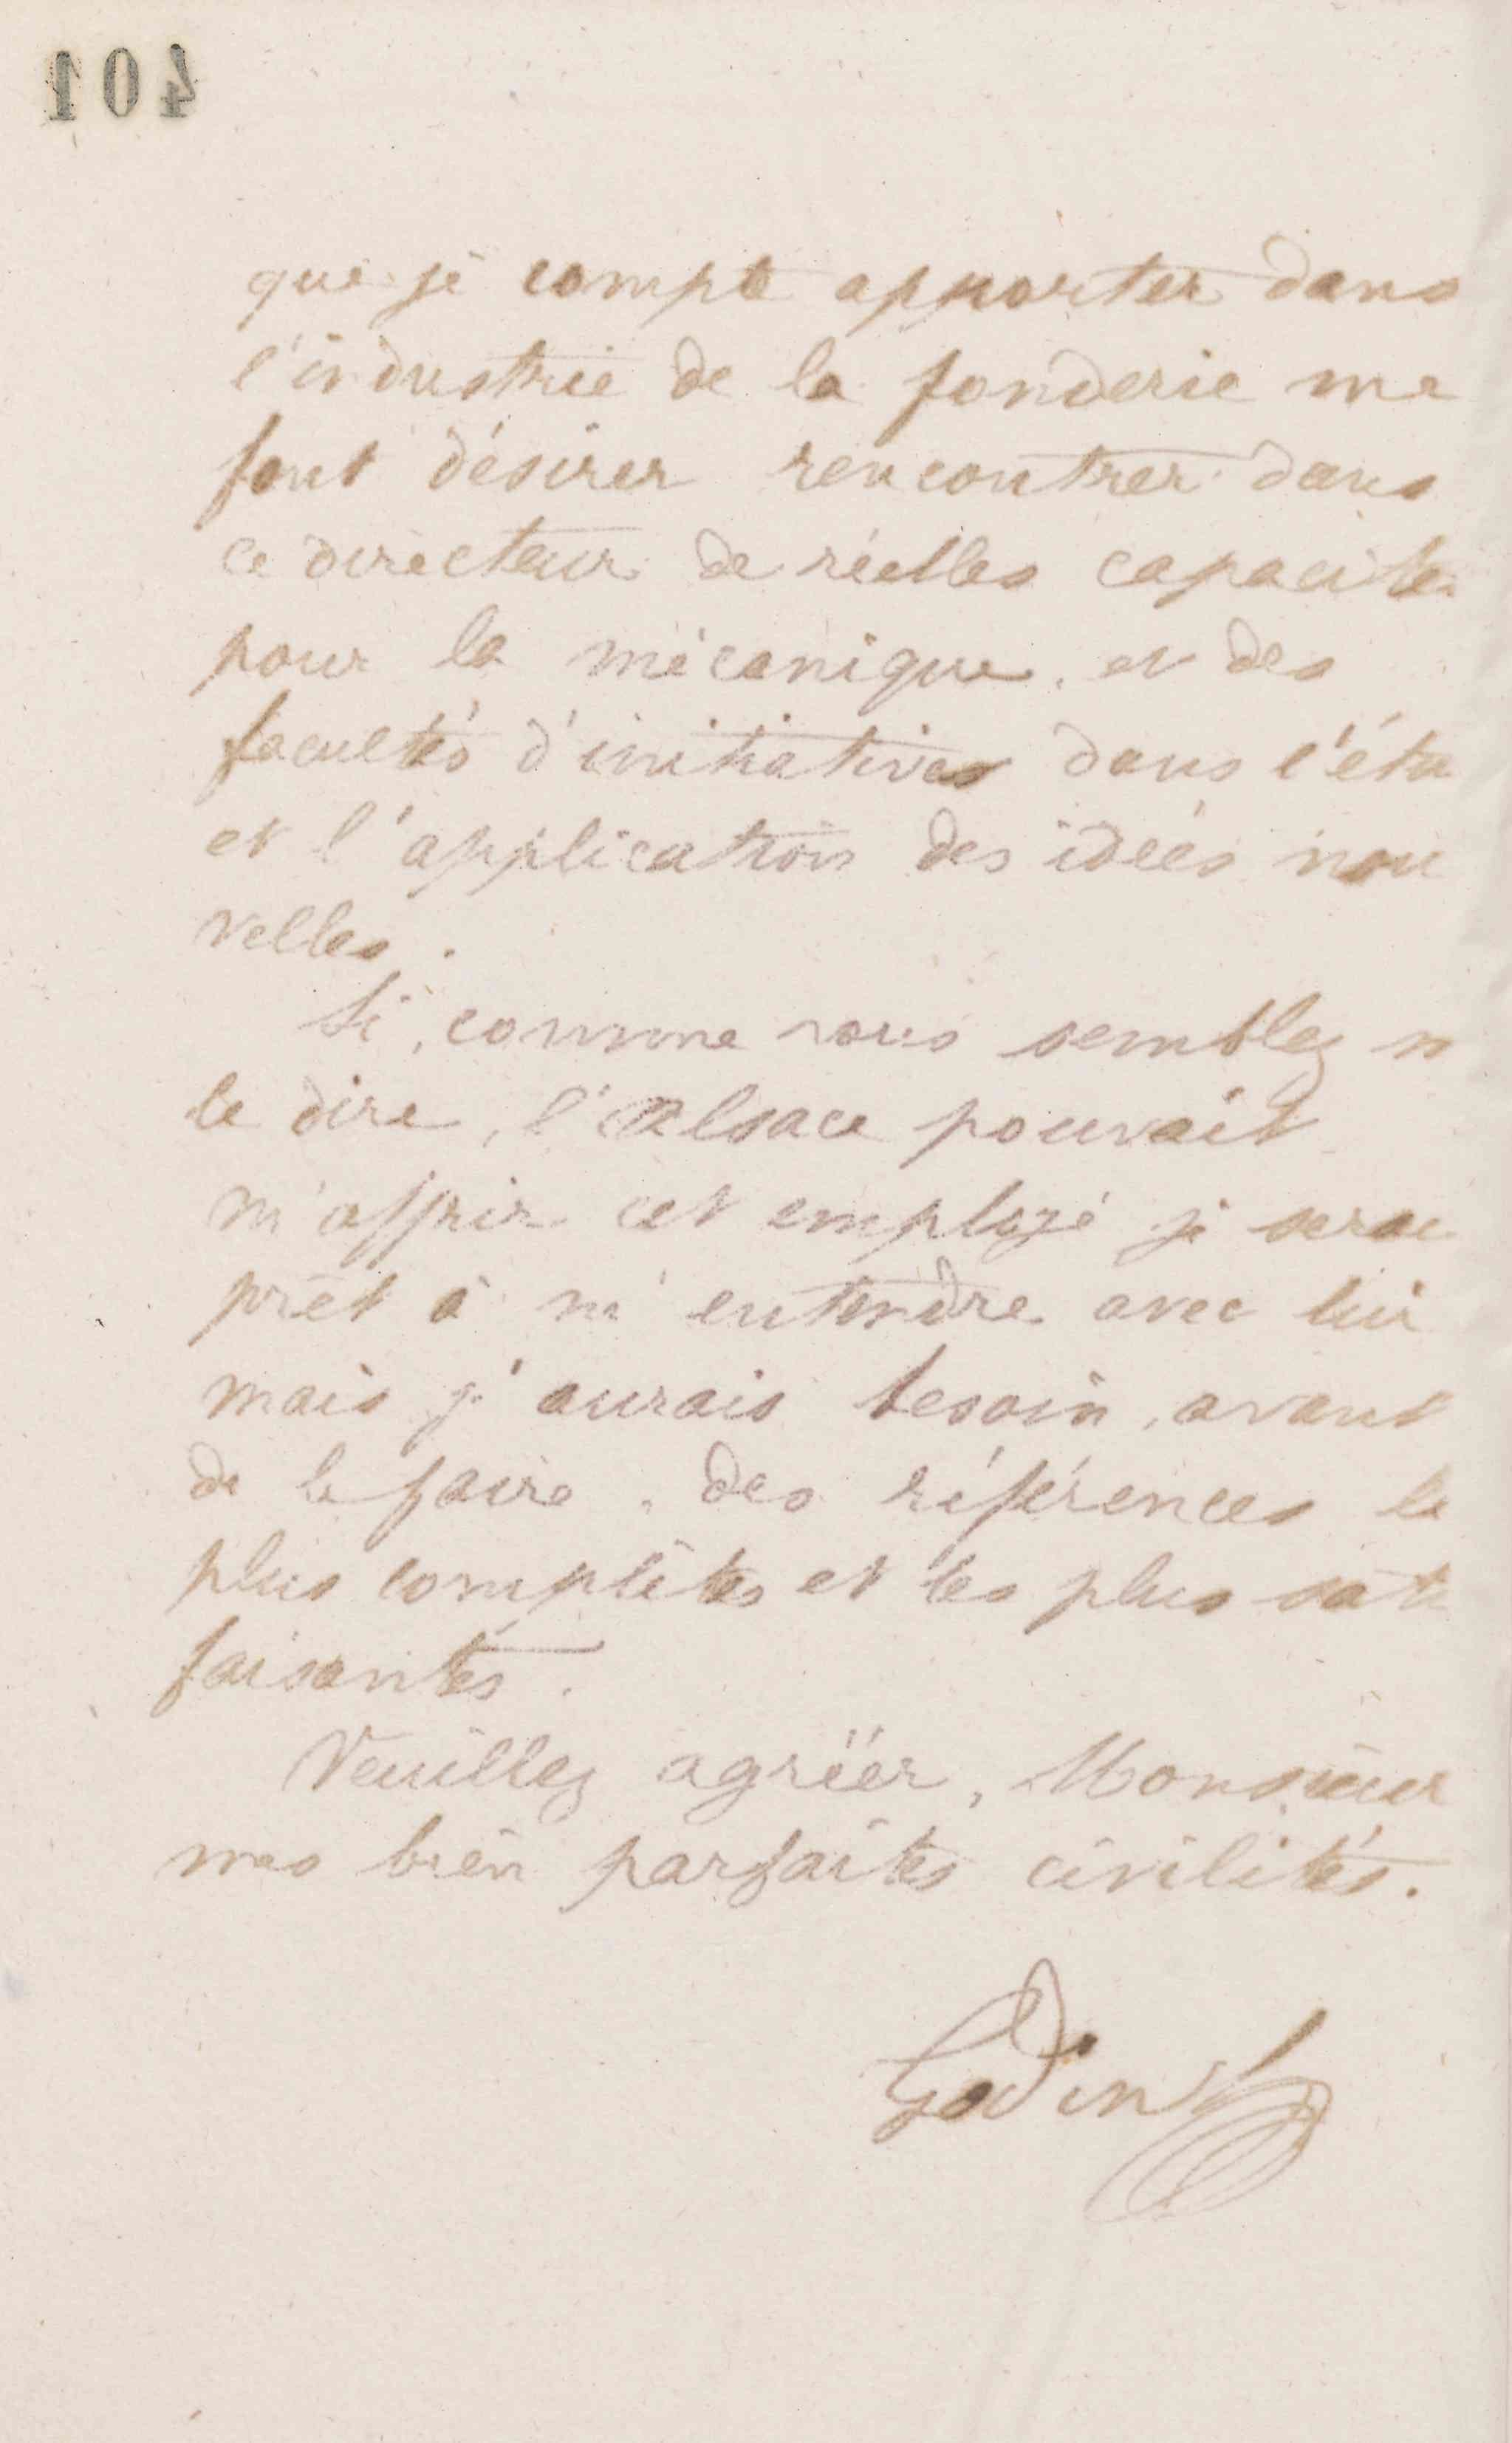 401
que je compte apporter dans
l'industrie de la fonderie me
font désirer rencontrer dans
ce directeur de réelles capacités
pour la mécanique, et des
facultés d'initiatives dans l'étu
et l'application des idées nou
velles.
Si, comme vous semblez
le dire, l'Alsace pouvait
m'offrir cet employé je serai
prêt à m'entendre avec lui
mais j'aurais besoin, avant
de le faire, des références le
plus complètes et les plus satis
faisantes.
Veuillez agréer, Monsieur
mes bien parfaites civilités.
Godin